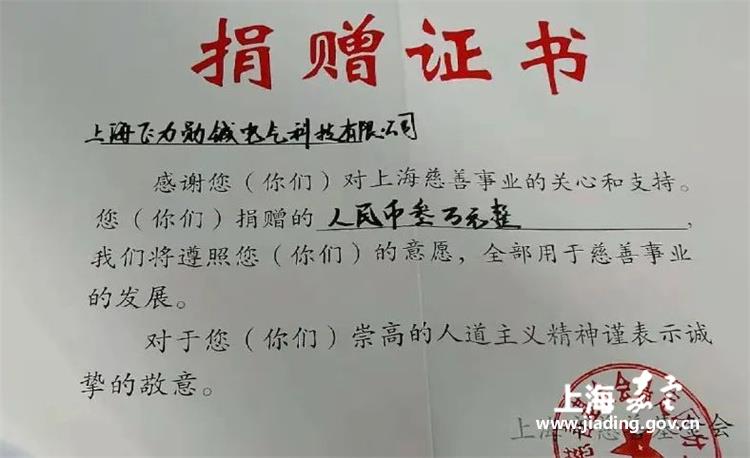 捐赠证书
上海飞力勋铖电气科技有限公司
感谢您（你们）对上海慈善事业的关心和支持。
您（你们）捐赠的 人民币叁万元整，
我们将遵照您（你们）的意愿，全部用于慈善事业
的发展。
对于您（你们）崇高的人道主义精神谨表示诚
挚的敬意。
上海市慈善基金会
上海嘉定
www.jiading.gov.cn